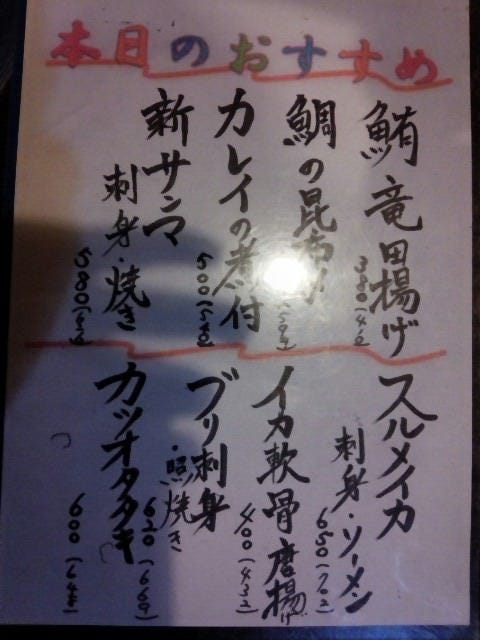 本日のおすすめ
鮪竜田揚げ
380(410)
鯛の昆布〆
カレイの煮付
500(540)
新サンマ
刺身・焼き
580(626)
スルメイカ
刺身・ソーメン
650(702)
イカ軟骨唐揚げ
400(432)
ブリ刺身
・照焼き
620(669)
カツオタタキ
600(648)